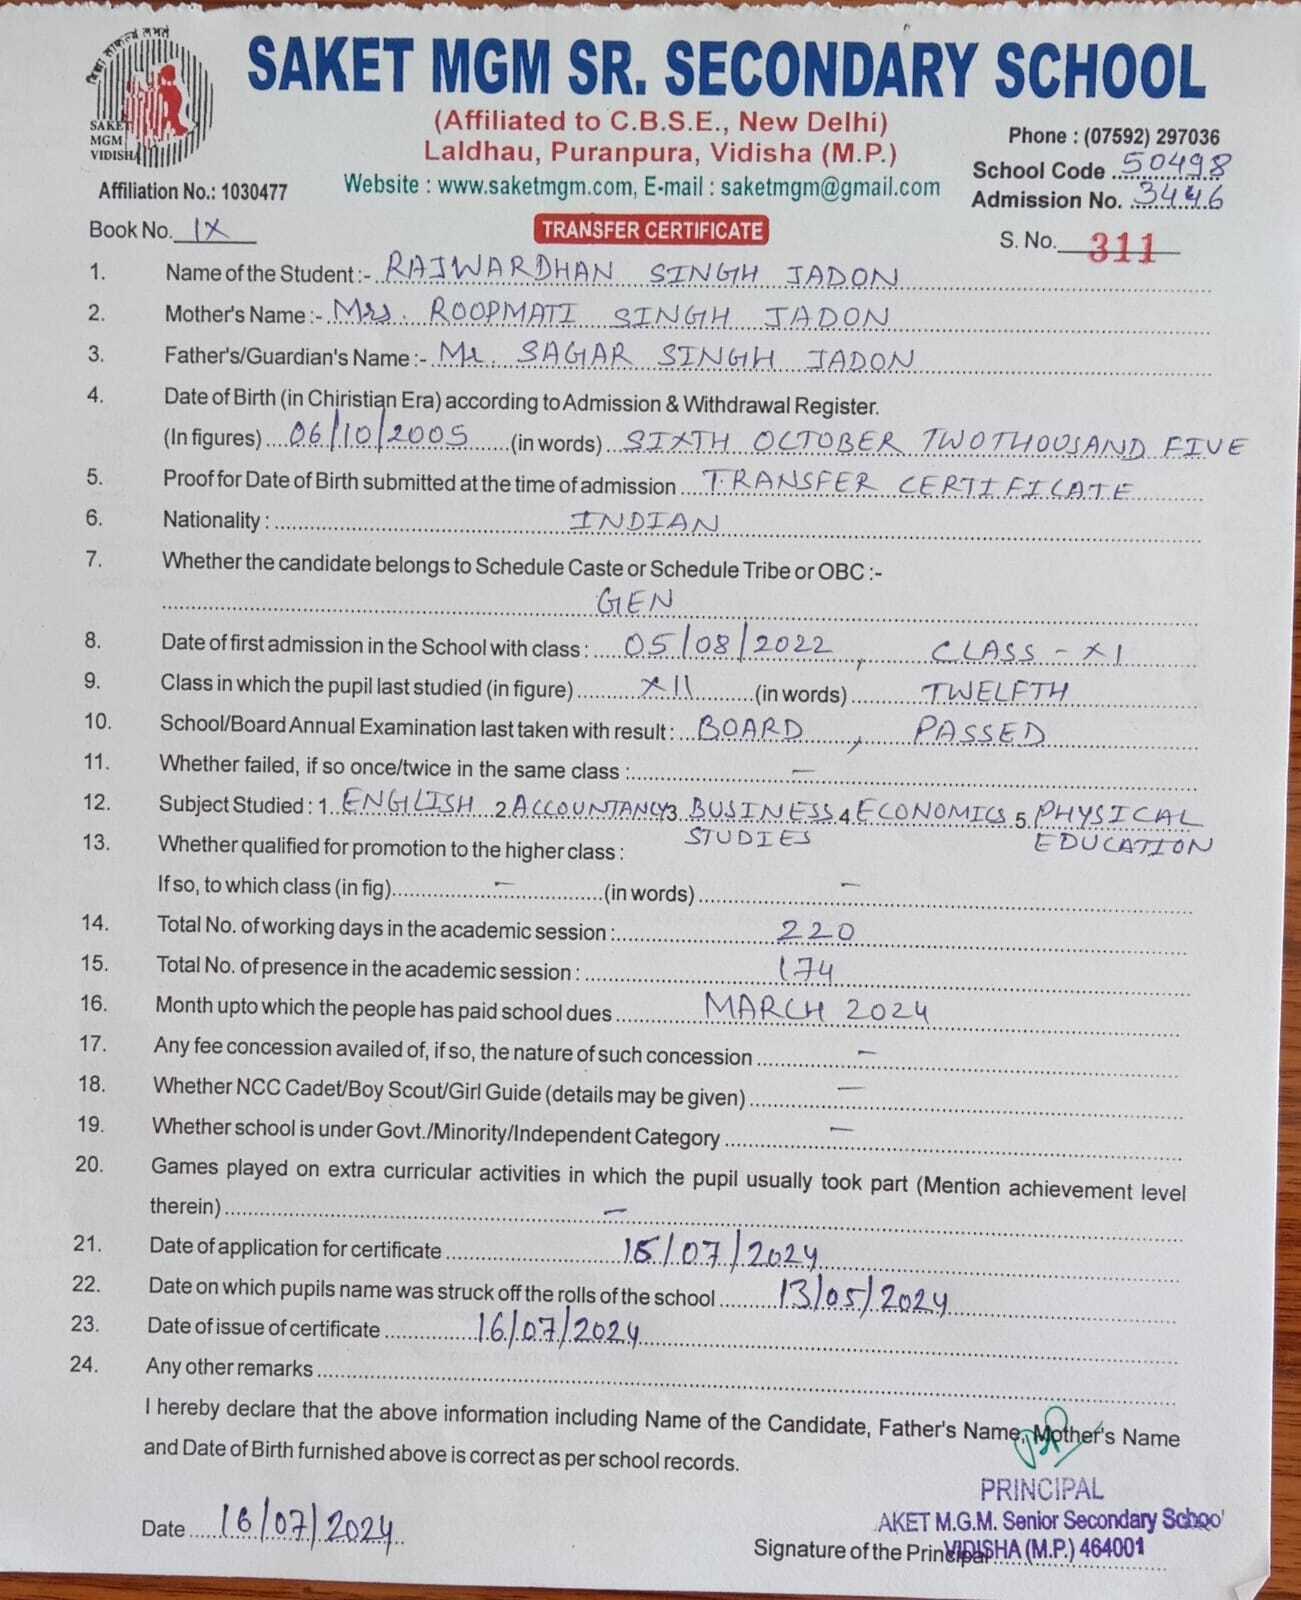 विद्या साफल्यं लभते
SAKET MGM VIDISHA
SAKET MGM SR. SECONDARY SCHOOL
(Affiliated to C.B.S.E., New Delhi)
Laldhau, Puranpura, Vidisha (M.P.)
Phone : (07592) 297036
School Code 50498
Affiliation No.: 1030477
Website : www.saketmgm.com, E-mail : saketmgm@gmail.com
Admission No. 3446
Book No. IX
TRANSFER CERTIFICATE
S. No. 311
1. Name of the Student :- RAJWARDHAN SINGH JADON
2. Mother's Name :- Mrs. ROOPMATI SINGH JADON
3. Father's/Guardian's Name :- Mr. SAGAR SINGH JADON
4. Date of Birth (in Chiristian Era) according to Admission & Withdrawal Register.
(In figures) 06/10/2005 (in words) SIXTH OCTOBER TWOTHOUSAND FIVE
5. Proof for Date of Birth submitted at the time of admission TRANSFER CERTIFICATE
6. Nationality : INDIAN
7. Whether the candidate belongs to Schedule Caste or Schedule Tribe or OBC :-
GEN
8. Date of first admission in the School with class : 05/08/2022, CLASS - XI
9. Class in which the pupil last studied (in figure) XII (in words) TWELFTH
10. School/Board Annual Examination last taken with result : BOARD, PASSED
11. Whether failed, if so once/twice in the same class : —
12. Subject Studied : 1. ENGLISH 2 ACCOUNTANCY 3 BUSINESS STUDIES 4 ECONOMICS 5 PHYSICAL EDUCATION
13. Whether qualified for promotion to the higher class :
If so, to which class (in fig) — (in words) —
14. Total No. of working days in the academic session : 220
15. Total No. of presence in the academic session : 174
16. Month upto which the people has paid school dues MARCH 2024
17. Any fee concession availed of, if so, the nature of such concession —
18. Whether NCC Cadet/Boy Scout/Girl Guide (details may be given) —
19. Whether school is under Govt./Minority/Independent Category —
20. Games played on extra curricular activities in which the pupil usually took part (Mention achievement level
therein) —
21. Date of application for certificate 15/07/2024
22. Date on which pupils name was struck off the rolls of the school 13/05/2024
23. Date of issue of certificate 16/07/2024
24. Any other remarks
I hereby declare that the above information including Name of the Candidate, Father's Name, Mother's Name
and Date of Birth furnished above is correct as per school records.
PRINCIPAL
AKET M.G.M. Senior Secondary School
VIDISHA (M.P.) 464001
Date 16/07/2024
Signature of the Principal